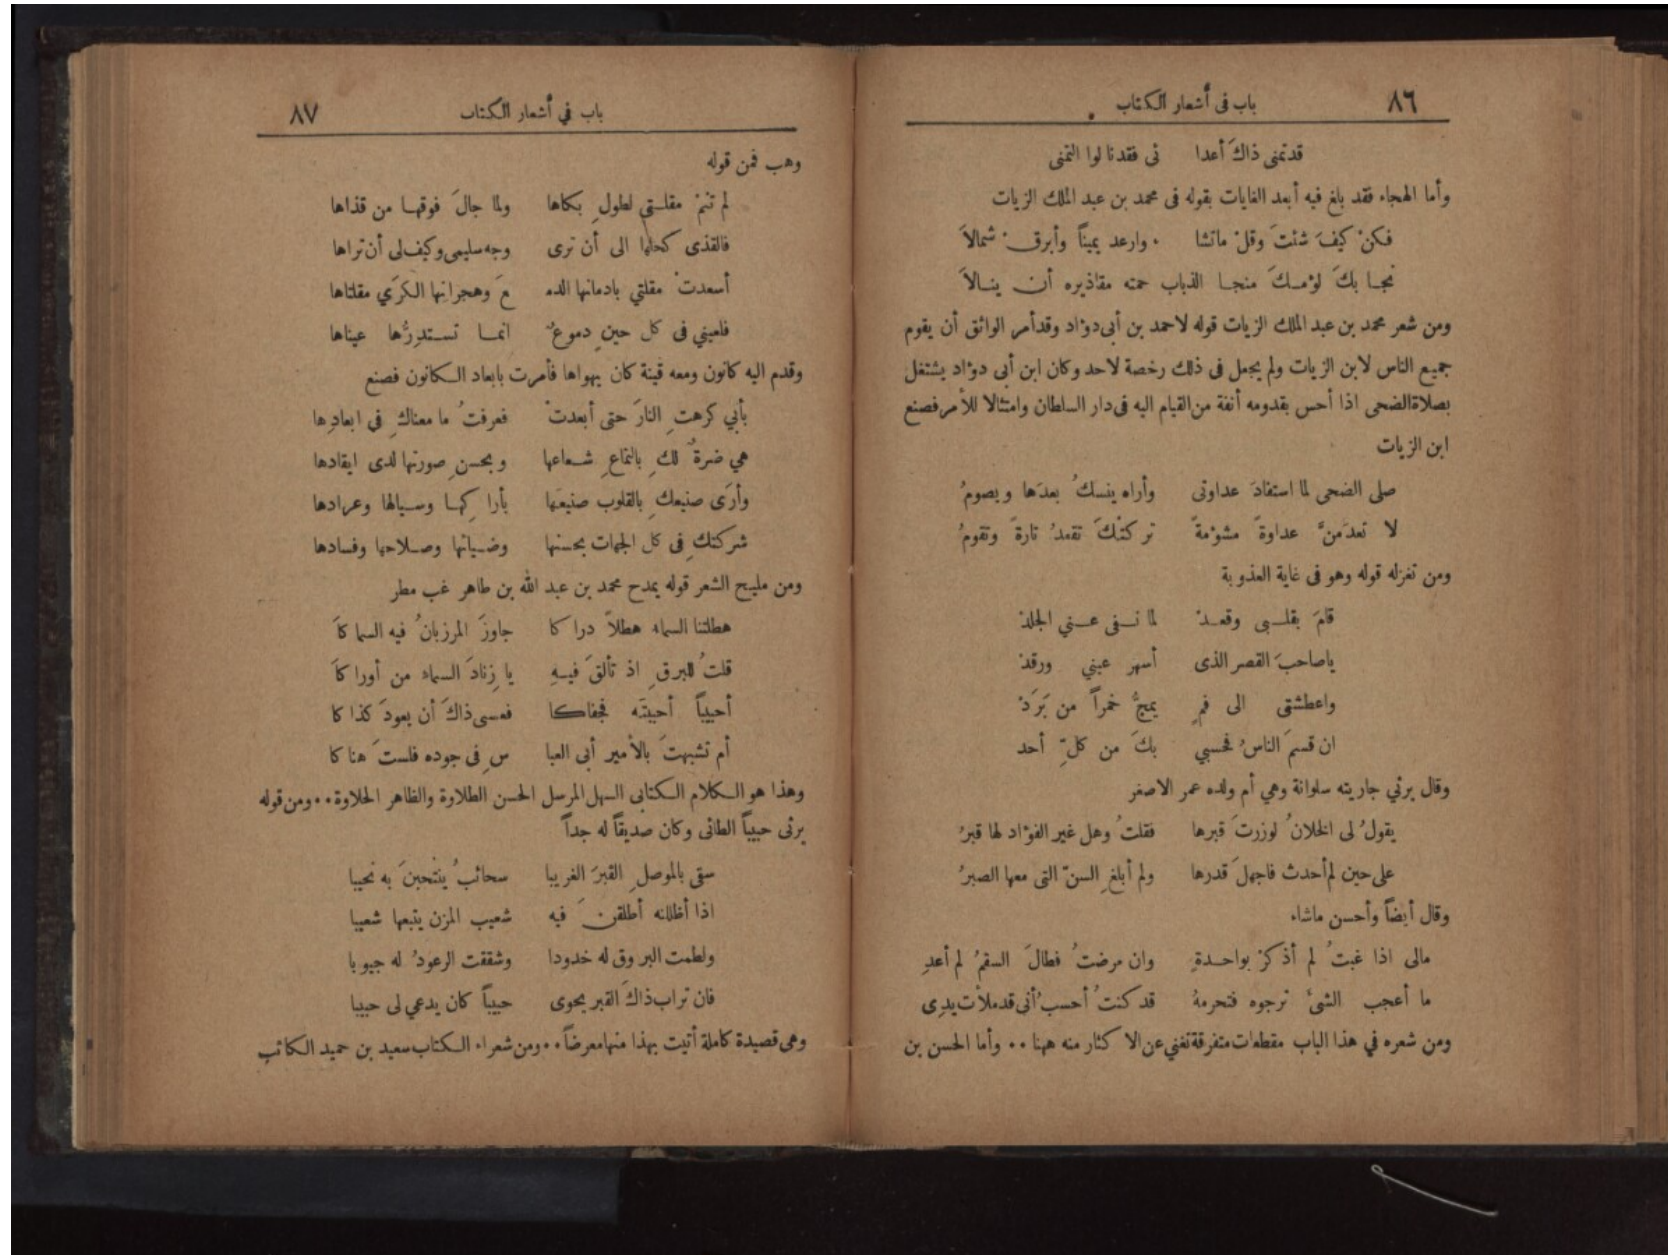 ٨٦
باب في أشعار الكتاب
قد تمنى ذاك أعدا ئى فقد نالوا التمنى
وأما الهجاء فقد بلغ فيه أبعد الغايات بقوله فى محمد بن عبد الملك الزيات
فكنْ كيفَ شئتَ وقلْ ماتشا وارعد يميناً وأبرقْ شمالاَ
نجا بكَ لؤمكَ منجا الذباب حمته مقاذيره أن ينالاَ
ومن شعر محمد بن عبد الملك الزيات قوله لاحمد بن أبى دؤاد وقد أمر الواثق أن يقوم
جميع الناس لابن الزيات ولم يجعل فى ذلك رخصة لاحد وكان ابن أبى دؤاد يشتغل
بصلاة الضحى اذا أحس بقدومه أنفة من القيام اليه فى دار السلطان وامتثالا للأمر فصنع
ابن الزيات
صلى الضحى لما استفادَ عداوتى وأراه ينسكُ بعدَها ويصومُ
لا تعدَمنَّ عداوةً مشؤمةً تركتْكَ تقعدُ تارةً وتقومُ
ومن تغزله قوله وهو فى غاية العذوبة
قامَ بقلبى وقعدْ لما نفى عني الجلدْ
ياصاحبَ القصر الذى أسهر عيني ورقدْ
واعطشتى الى فمٍ يمجُّ خمراً من بَرَدْ
ان قسمَ الناسُ فحسبي بكَ من كلِّ أحد
وقال يرثي جاريته سلوانة وهي أم ولده عمر الاصغر
يقولُ لى الخلانُ لو زرتَ قبرها فقلتُ وهل غير الفؤاد لها قبرُ
على حين لم أحدث فاجهلَ قدرها ولم أبلغِ السنّ التى معها الصبرُ
وقال أيضاً وأحسن ماشاء
مالى اذا غبتُ لم أذكرْ بواحدةٍ وان مرضتُ فطالَ السقمُ لم أعدِ
ما أعجب الشئَ ترجوه فتحرمهُ قد كنتُ أحسبُ أنى قد ملأت يدِى
ومن شعره في هذا الباب مقطعات متفرقة تغني عن الاكثار منه ههنا ٠٠ وأما الحسن بن
باب في أشعار الكتاب
٨٧
وهب فمن قوله
لم تنمْ مقلتي لطولِ بكاها ولما جالَ فوقها من قذاها
فالقذى كحلها الى أن ترى وجه سليمى وكيف لى أن تراها
أسعدتْ مقلتي بادمانها الدم عَ وهجرانها الكَرَي مقلتاها
فلعيني فى كل حينٍ دموعٌ انما تستدرُّها عيناها
وقدم اليه كانون ومعه قينة كان يهواها فأمرت بابعاد الكانون فصنع
بأبي كرهتِ النارَ حتى أبعدتْ فعرفتُ ما معناكِ في ابعادِها
هي ضرةٌ لكِ بالتماعِ شعاعها وبحسنِ صورتها لدى ايقادها
وأرَى صنيعكِ بالقلوب صنيعَها بأراكِها وسيالها وعرادها
شركتكِ فى كل الجهات بحسنها وضيائها وصلاحها وفسادها
ومن مليح الشعر قوله يمدح محمد بن عبد الله بن طاهر غب مطر
هطلتنا السماء هطلاً دراكا جاوزَ المرزبانُ فيه السماكاَ
قلتُ للبرقِ اذ تألقَ فيهِ يا زِنادَ السماءِ من أوراكاَ
أحبيباً أحببتَه فجفاكا فعسى ذاكَ أن يعودَ كذاكا
أم تشبهتَ بالأمير أبى العبا سِ فى جوده فلستَ هناكا
وهذا هو الكلام الكتابى السهل المرسل الحسن الطلاوة والظاهر الحلاوة ٠٠ ومن قوله
يرثى حبيباً الطائى وكان صديقاً له جداً
سقى بالموصلِ القبرَ الغريبا سحائبُ ينتحبنَ به نحيبا
اذا أظللنه أطلقنَ فيه شعيب المزن يتبعها شعيبا
ولطمت البروق له خدودا وشققت الرعودُ له جيوبا
فان تراب ذاكَ القبر يحوى حبيباً كان يدعي لى حبيبا
وهى قصيدة كاملة أتيت بهذا منها معرضاً ٠٠ ومن شعراء الكتاب سعيد بن حميد الكاتب